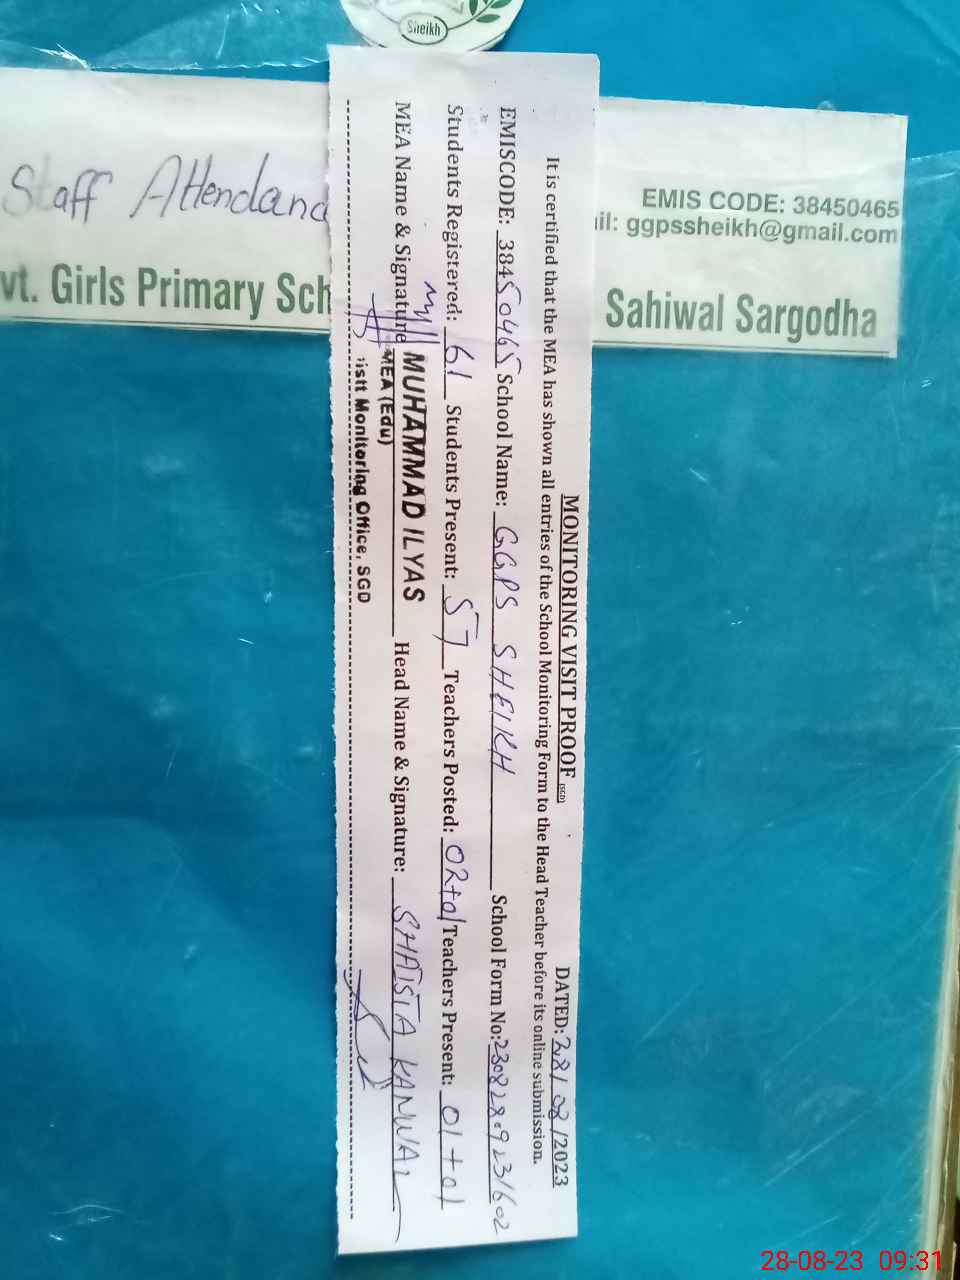 Sheikh
Staff Attendanc
EMIS CODE: 38450465
il: ggpssheikh@gmail.com
vt. Girls Primary Sch
Sahiwal Sargodha
MONITORING VISIT PROOF (SGD)
DATED: 28/08/2023
It is certified that the MEA has shown all entries of the School Monitoring Form to the Head Teacher before its online submission.
EMISCODE: 38450465 School Name: GGPS SHEIKH School Form No:
Students Registered: 61 Students Present: 57 Teachers Posted: 02+01 Teachers Present: 01+01
MEA Name & Signature MUHAMMAD ILYAS Head Name & Signature: SHAISTA KANWAL
MEA (Edu)
istt Monitoring Office, SGD
28-08-23 09:31